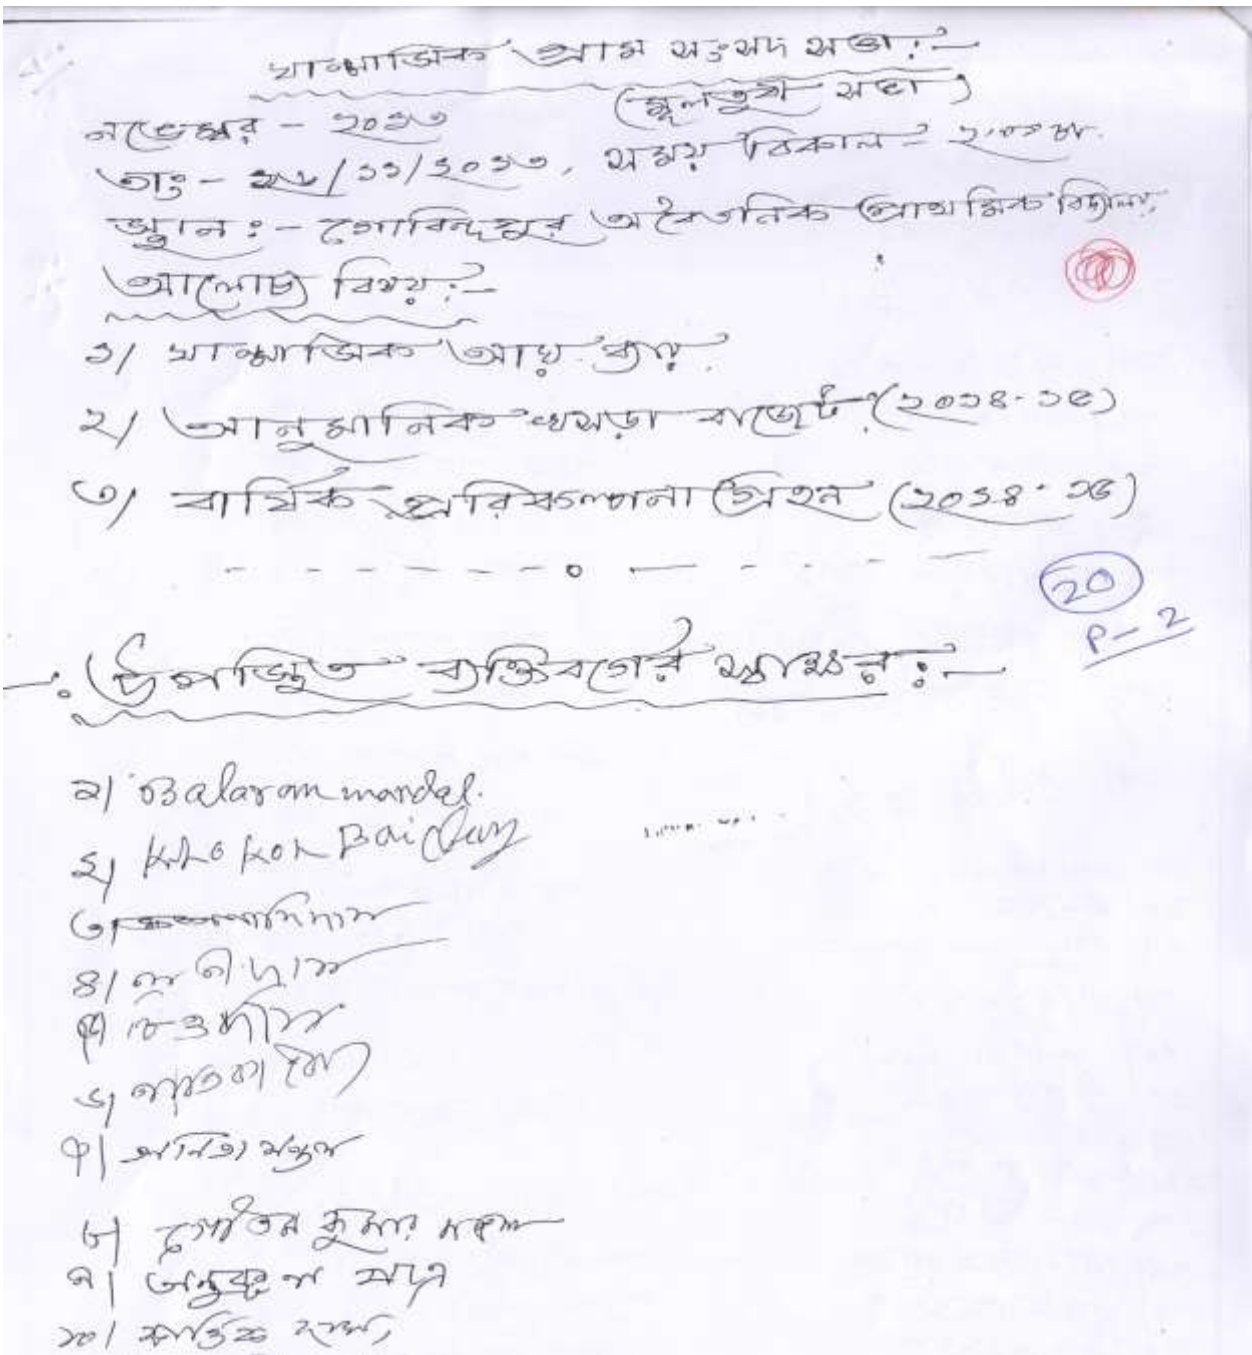 ষান্মাসিক গ্রাম সংসদ সভা :-
(মুলতুবী সভা)
নভেম্বর - ২০১৩
তাং - ২৬/১১/২০১৩, সময় বিকাল - ২.০০
স্থান :- গোবিন্দপুর অবৈতনিক প্রাথমিক বিদ্যালয়
আলোচ্য বিষয় :-
১/ ষান্মাসিক আয় ব্যয়
২/ আনুমানিক খসড়া বাজেট (২০১৪-১৫)
৩/ বার্ষিক পরিকল্পনা গ্রহন (২০১৪-১৫)
20
P-2
উপস্থিত ব্যক্তিবর্গের স্বাক্ষর :-
১/ Balaram mandal.
২/ Khokon Baiday
৩/
৪/ দাস
৫/ দাস
৬/
৭/ অনিতা মন্ডল
৮/ গৌতম কুমার মণ্ডল
৯/ অনুকূল
১০/ কার্ত্তিক